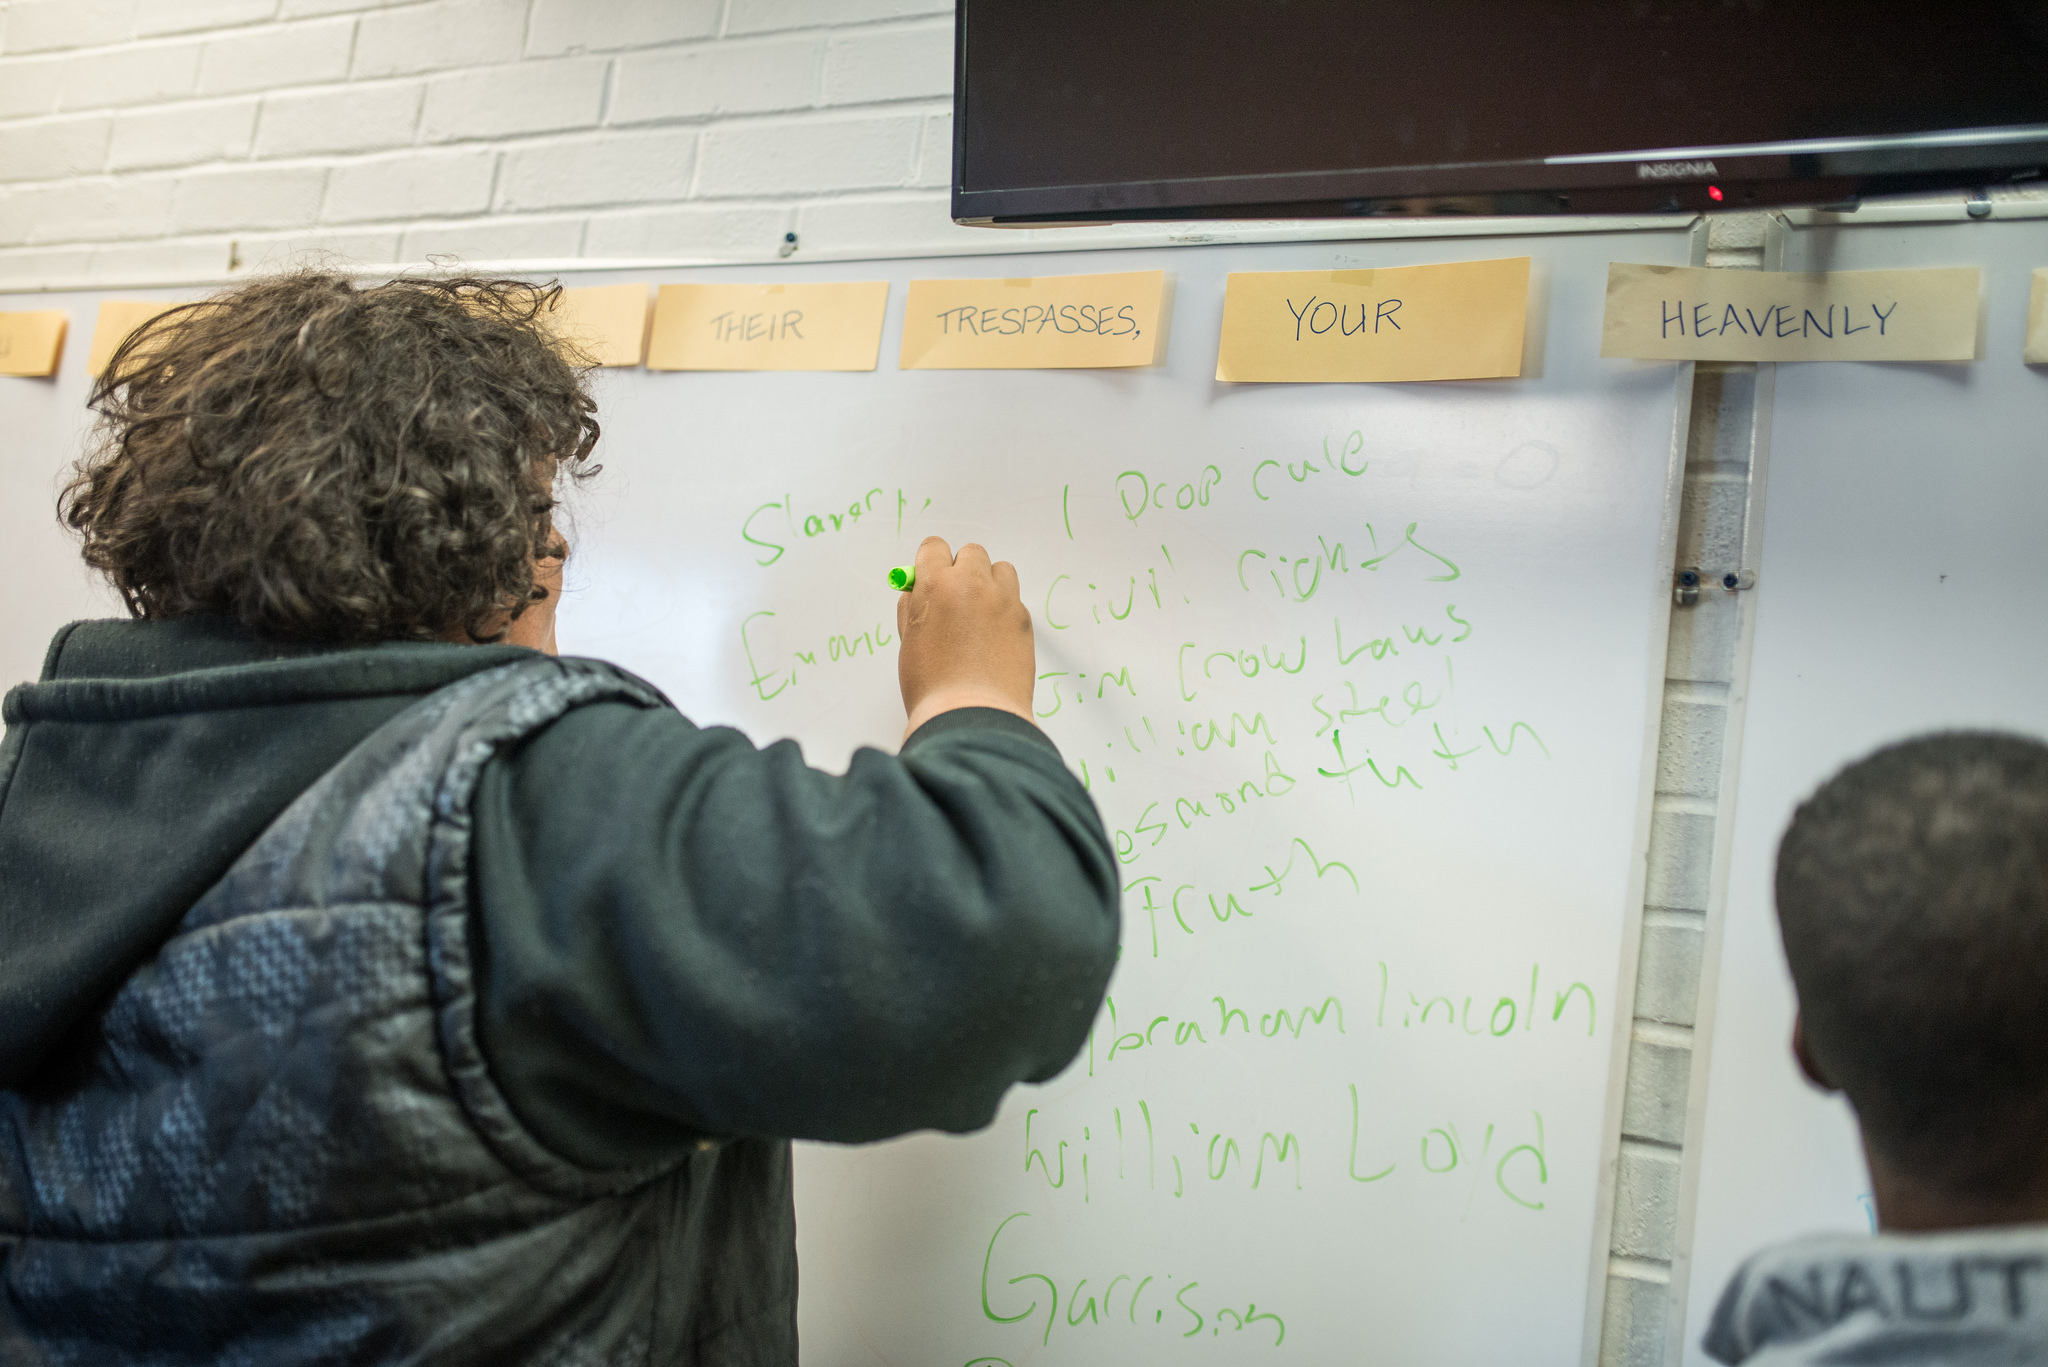 INSIGNIA
THEIR TRESPASSES, YOUR HEAVENLY
Slavery,
1 Drop rule
Civil rights
Jim Crow Laws
William Steel
esmond tutu
Truth
Abraham lincoln
William Loyd
Garrison
NAUT